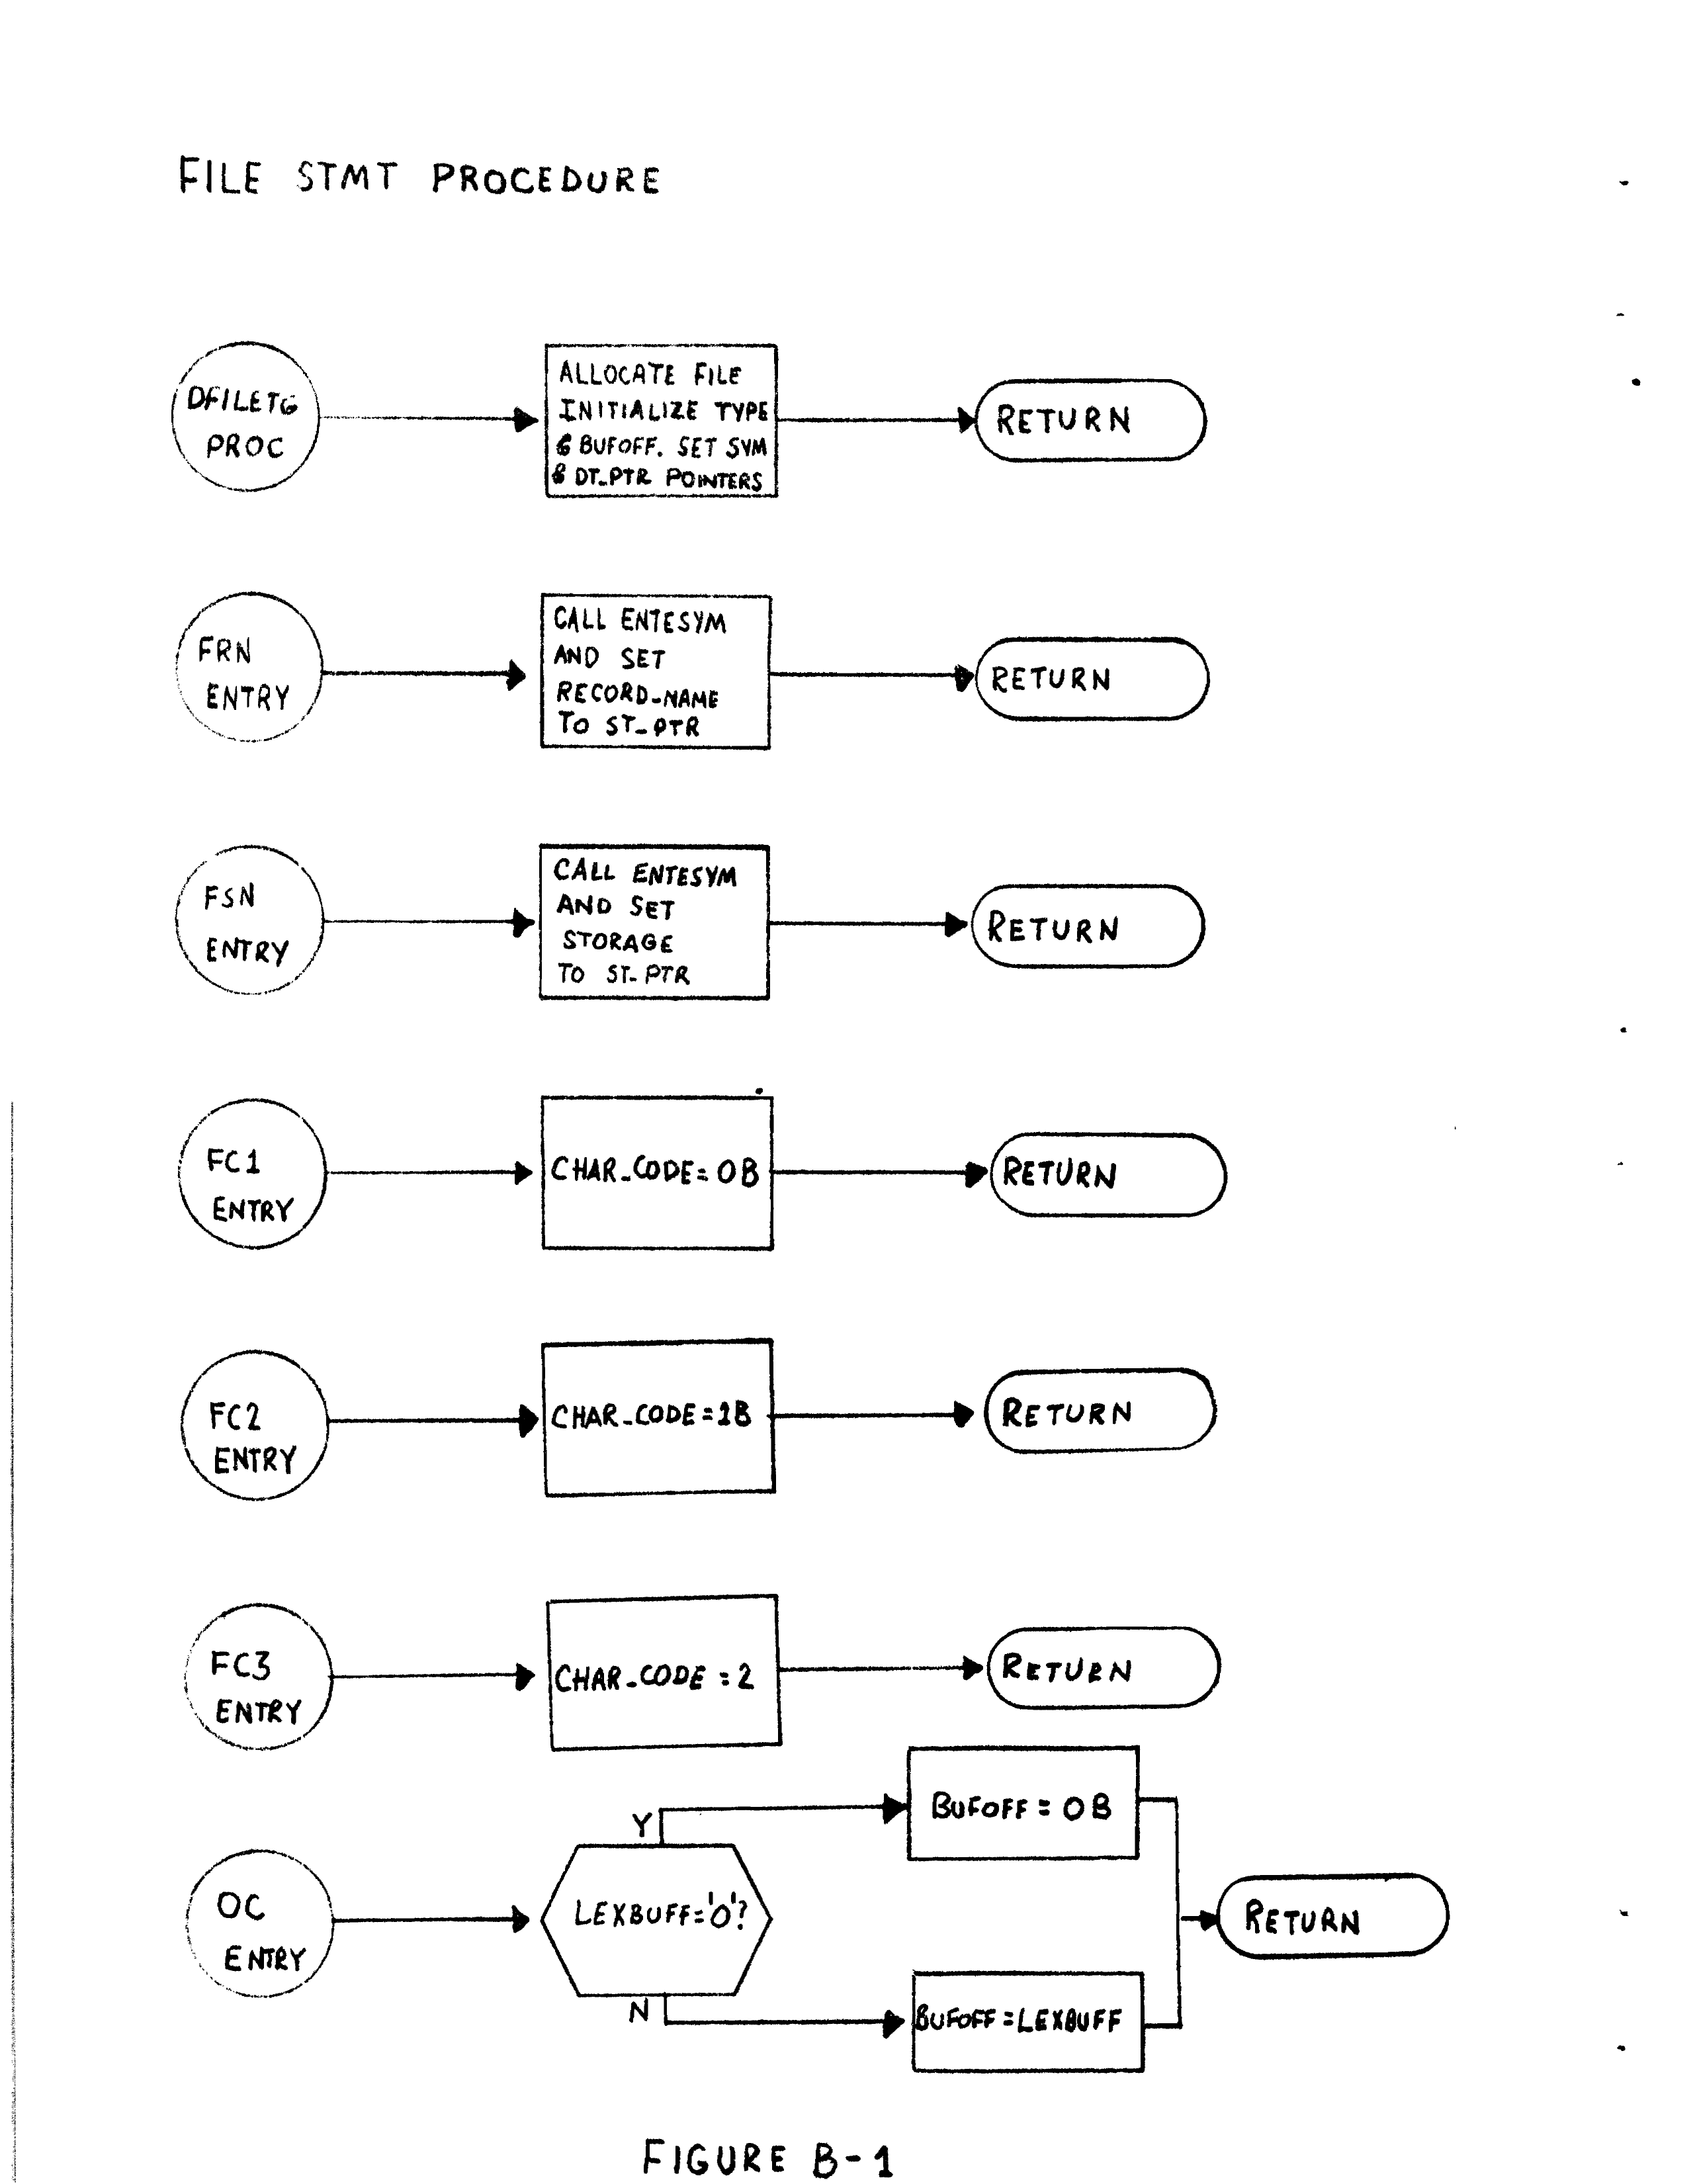 FILE STMT PROCEDURE
DFILETG
PROC
ALLOCATE FILE
INITIALIZE TYPE
& BUFOFF. SET SYM
& DT_PTR POINTERS
RETURN
FRN
ENTRY
CALL ENTESYM
AND SET
RECORD_NAME
TO ST_PTR
RETURN
FSN
ENTRY
CALL ENTESYM
AND SET
STORAGE
TO ST_PTR
RETURN
FC1
ENTRY
CHAR_CODE=0B
RETURN
FC2
ENTRY
CHAR_CODE=1B
RETURN
FC3
ENTRY
CHAR_CODE=2
RETURN
OC
ENTRY
LEXBUFF='0'?
Y
BUFOFF=0B
N
BUFOFF=LEXBUFF
RETURN
FIGURE B-1